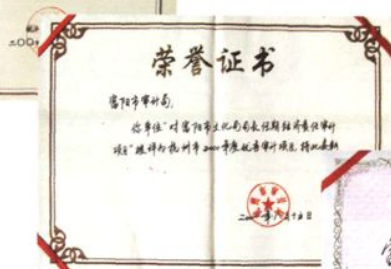 二00
荣誉证书
富阳市审计局:
你单位“对富阳市文化局局长任期经济责任审计
项目”被评为杭州市2000年度优秀审计项目,特此表彰